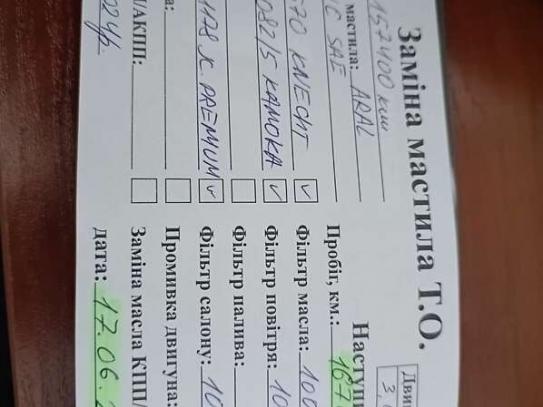 Заміна мастила Т.О.
157400 км
мастила: ARAL
SAE
70 KNECHT ✓
082/5 КАМОКА ✓
178 К. PREMIUM ✓
а:
/АКПП:
Двиг
3.
Наступ
Пробіг, км.: 167
Фільтр масла: 100
Фільтр повітря: 10
Фільтр палива:
Фільтр салону: 10
Промивка двигуна:
Заміна масла КПП/
дата: 17.06.